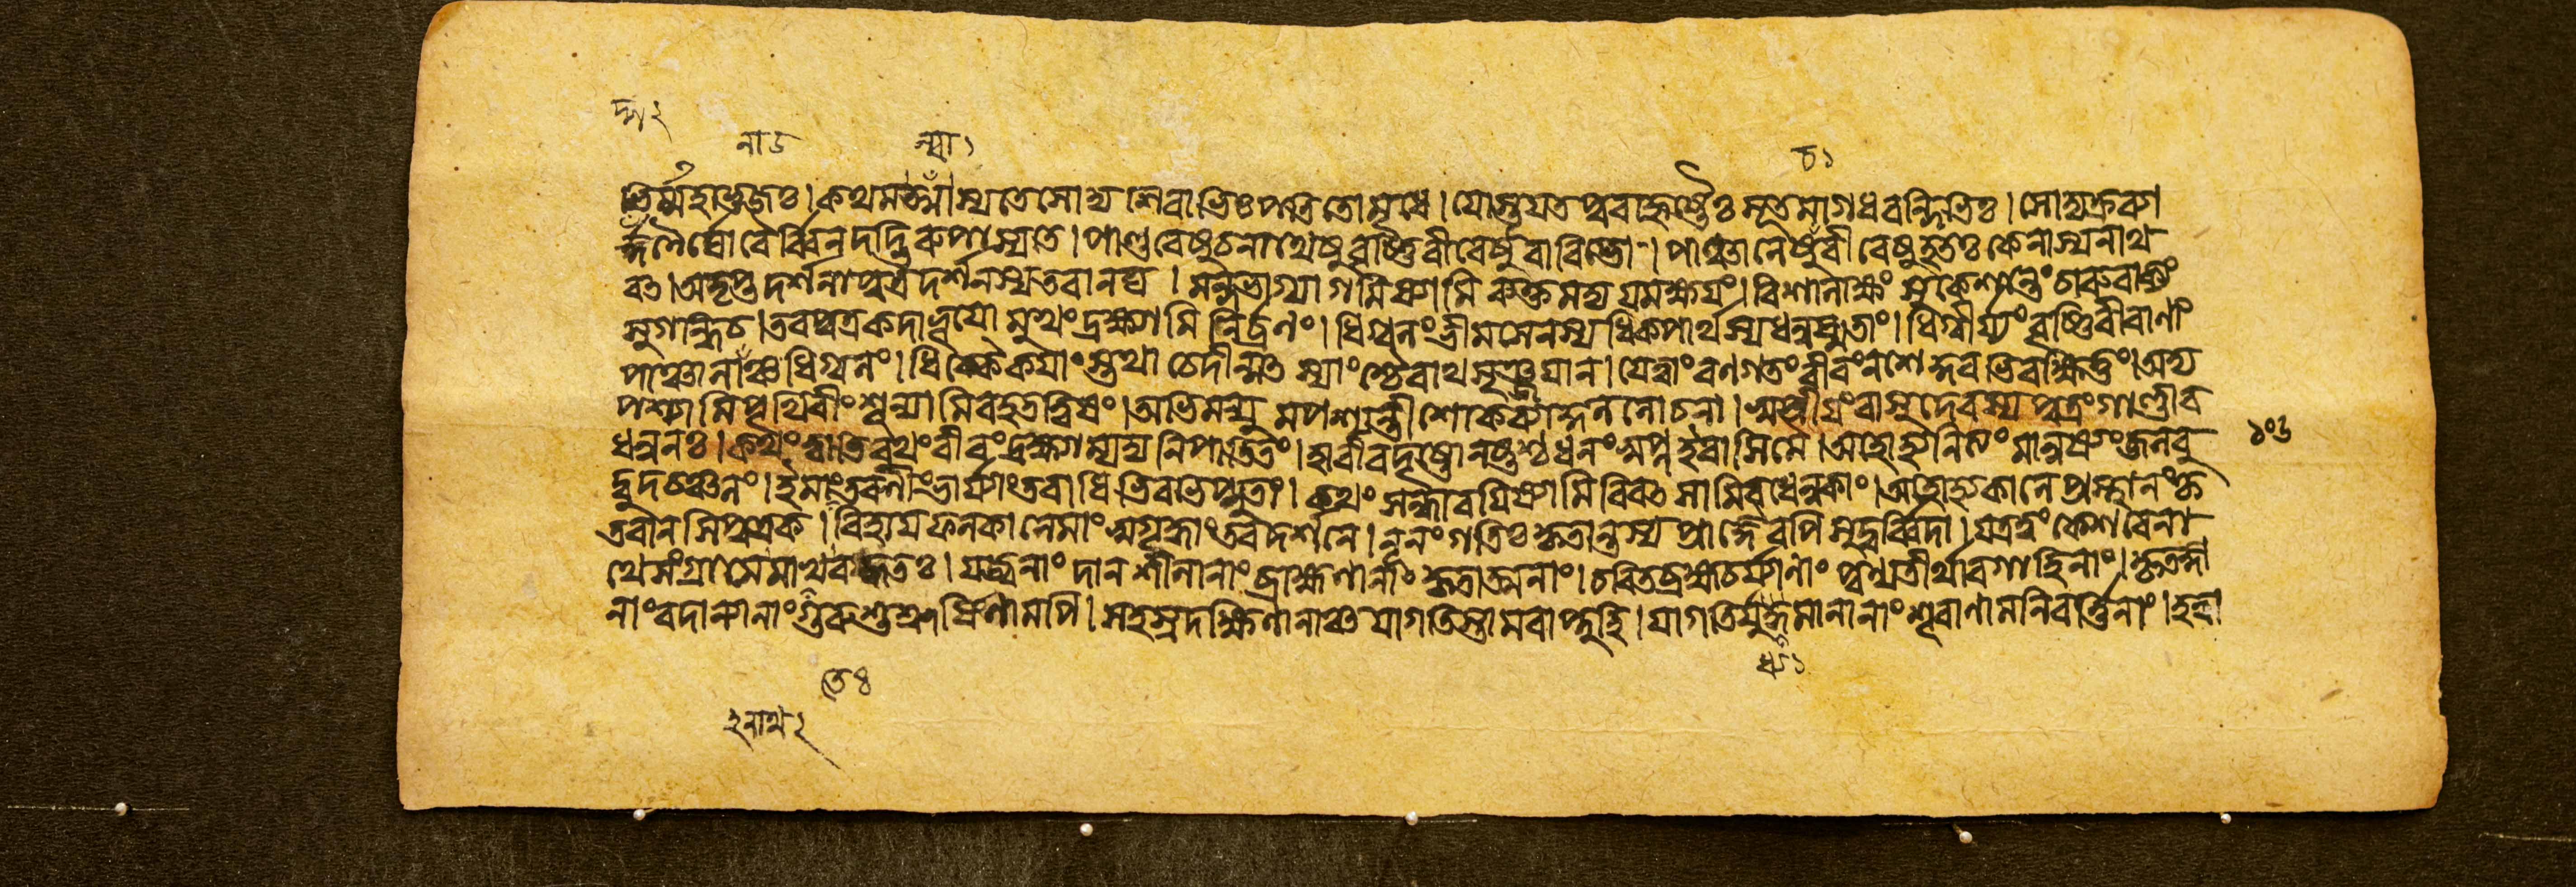 দ্দা ২
না ৬
ন্মা ১
চ ১
ভির্ম্মহাভুজঃ। কথমন্বাস্যতে সোদ্য শিবাভিঃ পতিতো মৃধে। যোস্তূযত প্রবরাহৃষ্টৈঃ সূতমাগধবন্দিভিঃ। সোদ্য ক্রব্যা
দ্গণৈর্ঘোরৈর্ব্বিনদদ্ভিরুপাস্যতে। পাণ্ডবেষু চ নাথেষু বৃষ্ণিবীরেষু বা বিভো। পাঞ্চালেষু বীরেষু হতঃ কেনাস্যনাথ
বৎ। অতৃপ্তদর্শনা পুত্র দর্শনস্য তবানঘ। মন্দভাগ্যা গমিষ্যামি ব্যক্তমদ্য যমক্ষযং। বিশালাক্ষং সুকেশান্তং চারুবাক্যং
সুগন্ধি চ। তব পুত্র কদা ভূযো মুখং দ্রক্ষ্যামি নির্ব্রণং। ধিগ্বলং ভীমসেনস্য ধিক্ পার্থস্য ধনুষ্মতাং। ধিগ্বীর্য্যং বৃষ্ণিবীরাণাং
পাঞ্চালানাঞ্চ ধিগ্বলং। ধিক্ কৈকযাংস্তথা চেদীন্মৎস্যাংশ্চৈবাথ সৃঞ্জযান। যে ত্বাং রণগতং বীরং ন শেকুরভিরক্ষিতুং। অদ্য
পশ্যামি পৃথিবীং শূন্যামিব হতত্বিষং। অভিমন্যুমপশ্যন্তী শোকব্যাকুললোচনা। স্বস্রীযং বাসুদেবস্য পুত্রং গাণ্ডীব
ধন্বনঃ। কথং ত্বাতিরথং বীরং দ্রক্ষ্যাম্যদ্য নিপাতিতং। হা বীর দৃষ্টো নষ্টশ্চ ধনং স্বপ্ন ইবাসি মে। অহো হ্যনিত্যং মানুষ্যং জলবু
দ্বুদচঞ্চলং। ইমাং তে তরুণীং ভার্য্যাং তবাধিভিরভিপ্লুতাং। কথং সন্ধারযিষ্যামি বিবৎসামিব ধেনুকাং। অহো হ্যকালে প্রস্থানং কৃ
তবানসি পুত্রক। বিহায ফলকালে মাং সুগৃদ্ধাং তব দর্শনে। নূনং গতিঃ কৃতান্তস্য প্রাজ্ঞৈরপি সুদুর্ব্বিদা। যত্র ত্বং কেশবে না
থে সংগ্রামে নাথবদ্ধতঃ। যজ্বনাং দানশীলানাং ব্রাহ্মণানাং কৃতাত্মনাং। চরিতব্রহ্মচর্য্যাণাং পুণ্যতীর্থাবগাহিনাং। কৃতজ্ঞা
নাং বদান্যানাং গুরুশুশ্রূষিণামপি। সহস্রদক্ষিণানাঞ্চ যা গতিস্তামবাপ্নুহি। যা গতির্যুধ্যমানানাং শূরাণামনিবর্ত্তিনাং। হত্বা
১০৬